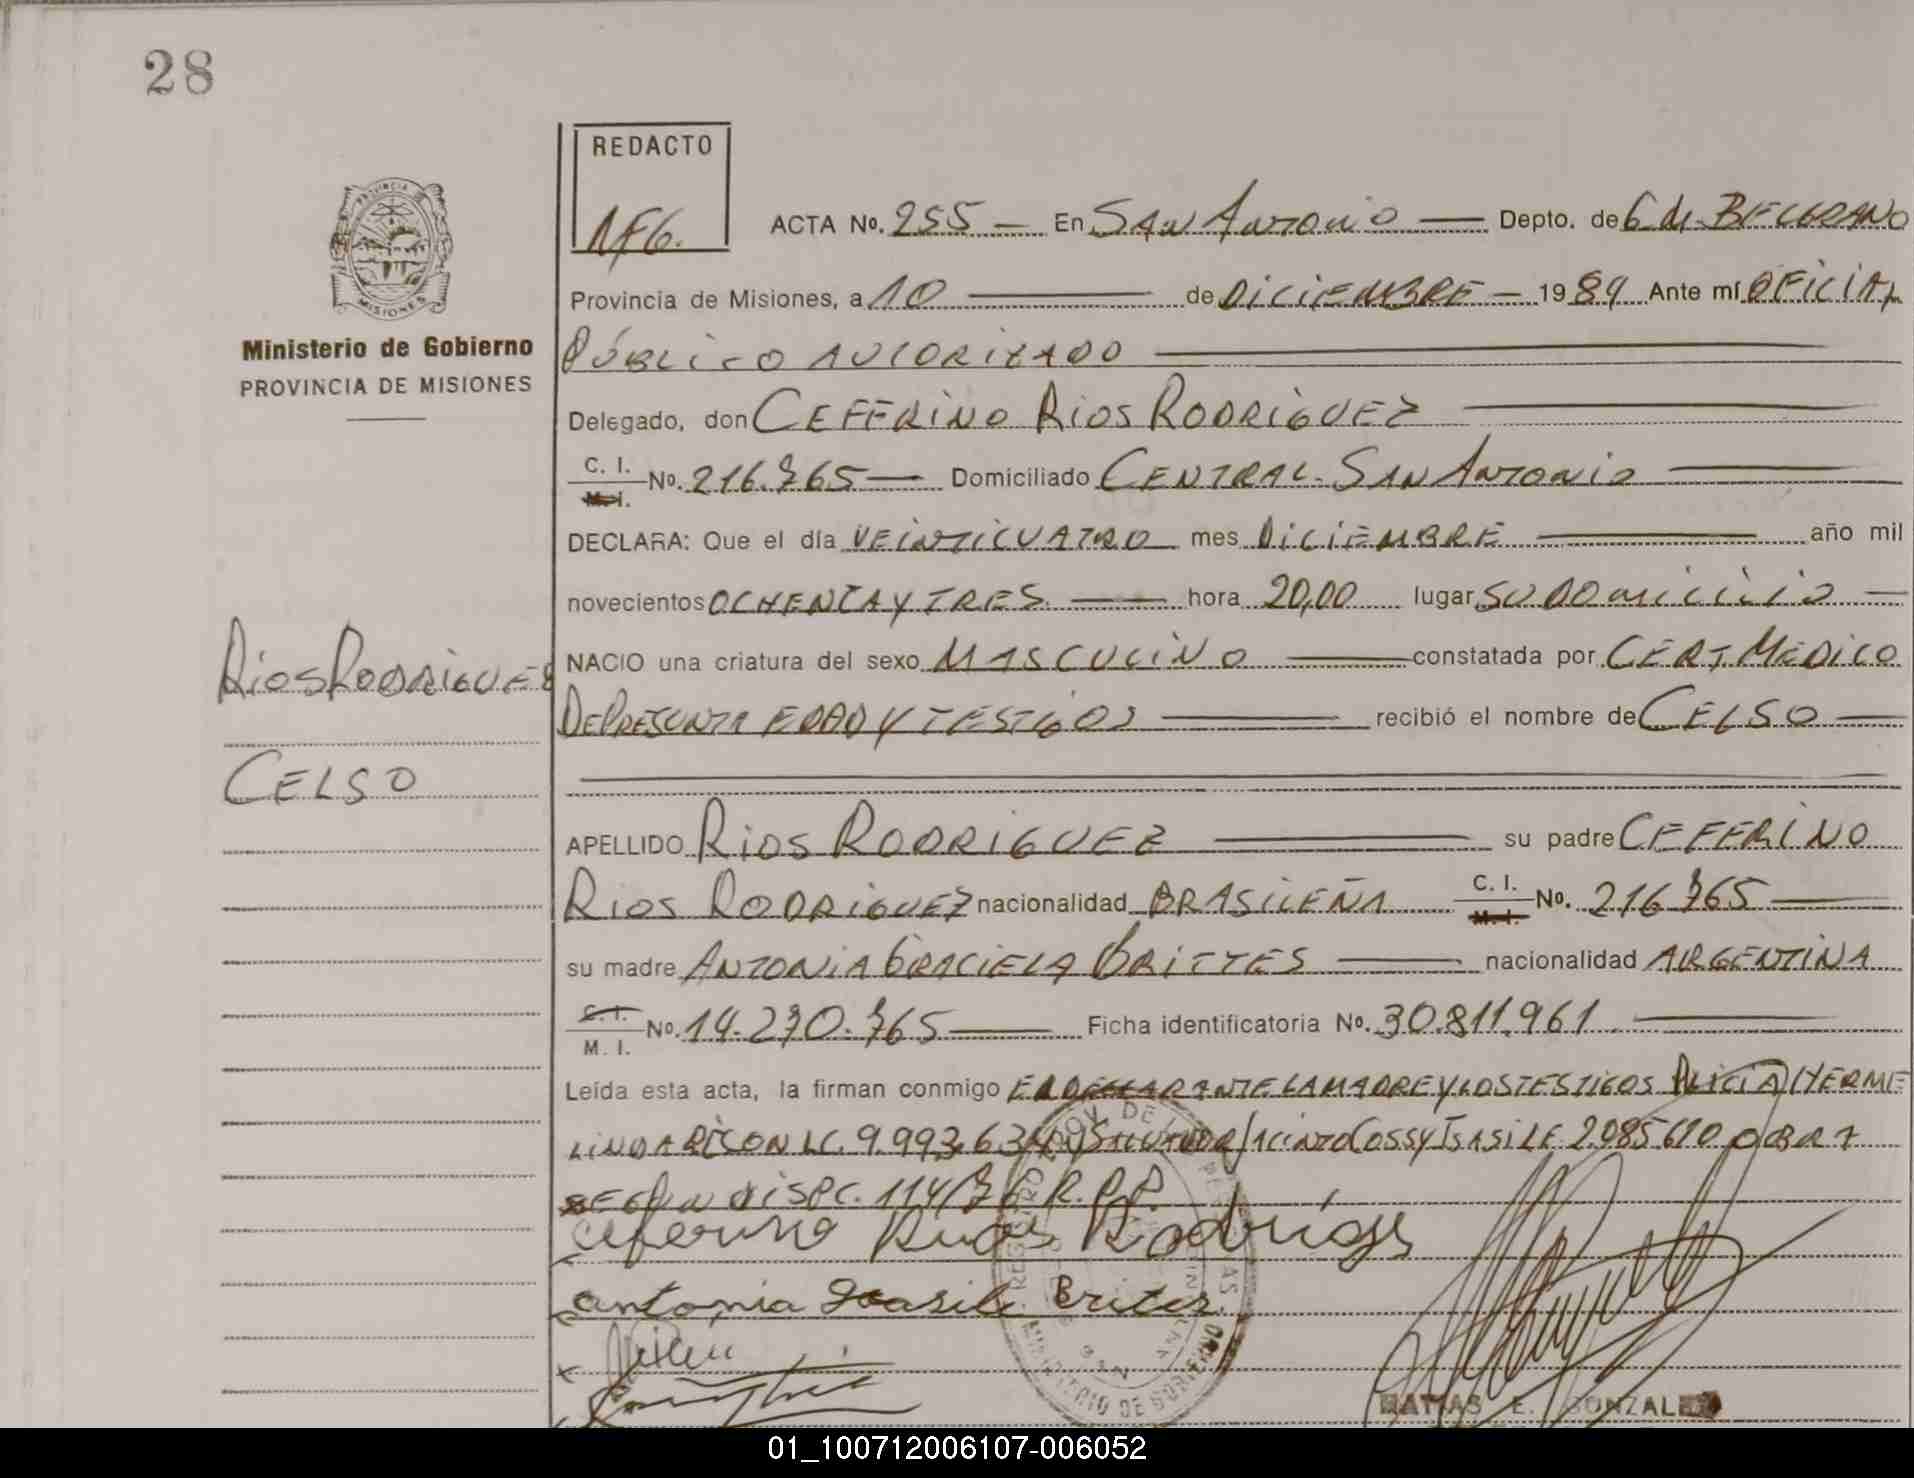 28
REDACTO
AFG.
PROVINCIA DE
MISIONES
Ministerio de Gobierno
PROVINCIA DE MISIONES
ACTA No. 255 — En SAN ANTONIO — Depto. de G. de BELGRANO
Provincia de Misiones, a 10 — de DICIEMBRE — 1989 Ante mí OFICIAL
PÚBLICO AUTORIZADO —
Delegado, don CEFERINO RIOS RODRIGUEZ —
C. I. M. I. No. 216.765 — Domiciliado CENTRAL - SAN ANTONIO —
DECLARA: Que el día VEINTICUATRO mes DICIEMBRE — año mil
novecientos OCHENTA Y TRES — hora 20,00 lugar SU DOMICILIO —
RIOS RODRIGUEZ
NACIO una criatura del sexo MASCULINO — constatada por CERT. MEDICO
DE PRESUNTA EDAD Y TESTIGOS — recibió el nombre de CELSO —
CELSO
APELLIDO RIOS RODRIGUEZ — su padre CEFERINO
RIOS RODRIGUEZ nacionalidad BRASILEÑA C. I. M. I. No. 216765 —
su madre ANTONIA GRACIELA BRITTES — nacionalidad ARGENTINA
C. I. M. I. No. 14.270.765 — Ficha identificatoria No. 30.811.961 —
Leída esta acta, la firman conmigo EL DECLARANTE LA MADRE Y LOS TESTIGOS ALICIA
LC. 9.993.63 SALVADOR JACINTO L.E. 2.085.610 OBRA
SEGUN DISPC. 114/76 R.P.P.
Ceferino Rios Rodrigs
antonia Brites
MINISTERIO DE GOBIERNO
MATIAS E. GONZALEZ
01_100712006107-006052